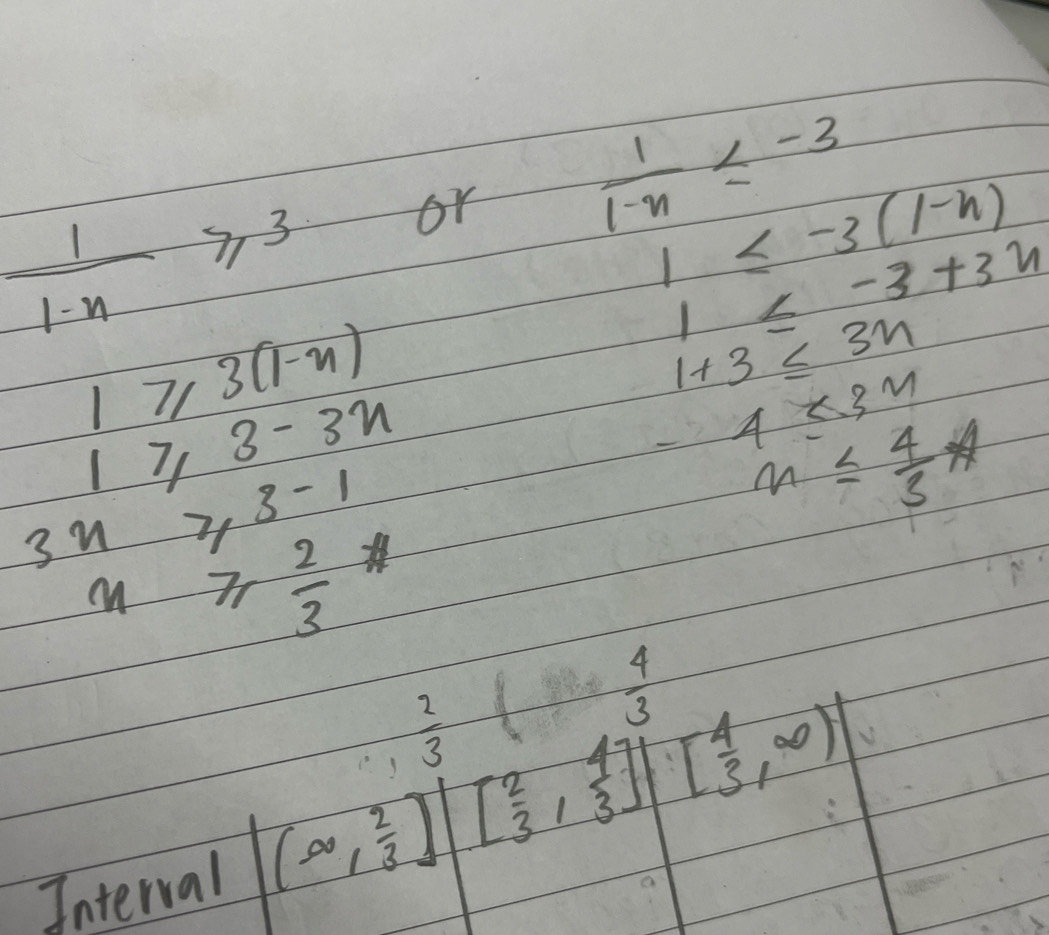 1/(1-x) ⩾ 3 or 1/(1-x) ≤ -3
1 ⩾ 3(1-x)
1 ⩾ 3-3x
3x ⩾ 3-1
x ⩾ 2/3 #
1 ≤ -3(1-x)
1 ≤ -3+3x
1+3 ≤ 3x
4 ≤ 3x
x ≤ 4/3 #
2/3 4/3
Interval | (∞, 2/3] | [2/3, 4/3] | [4/3, ∞) |